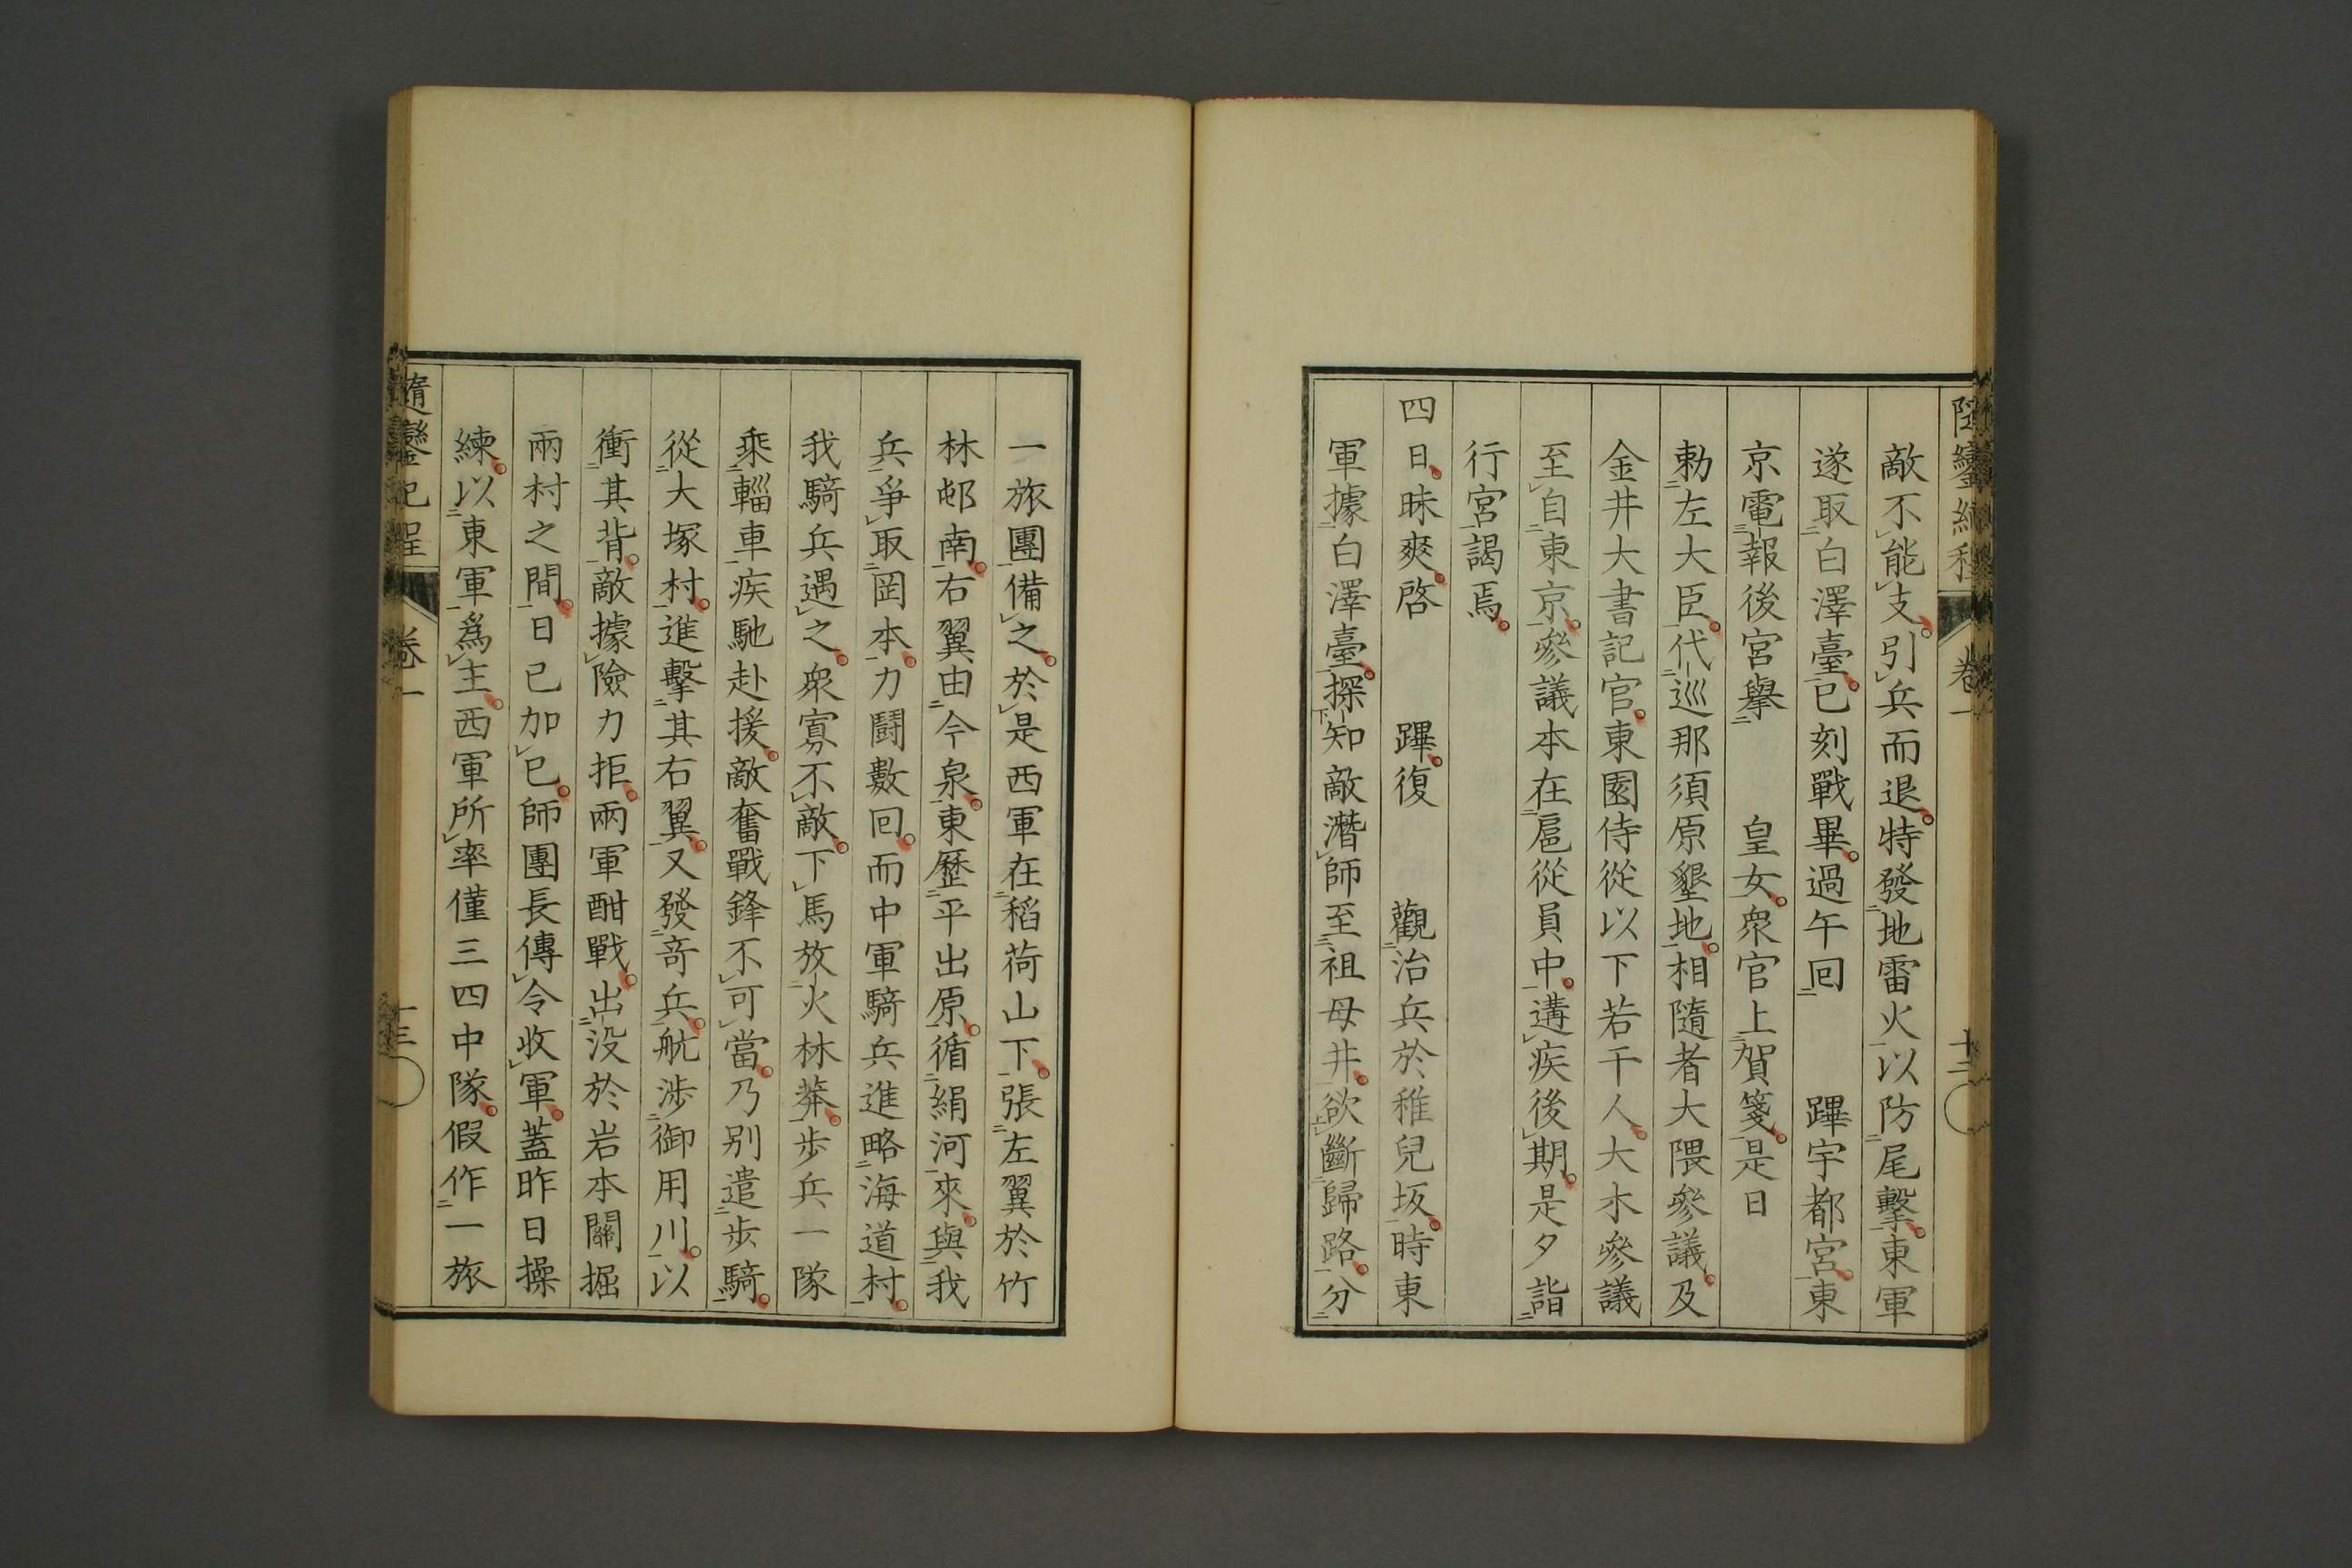 敵不能支。引兵而退。特發地雷火以防尾擊。東軍
遂取白澤臺。已刻戰畢。過午回 蹕宇都宮。東
京電報後宮擧 皇女。衆官上賀箋。是日
勅左大臣。代巡那須原墾地。相隨者大隈參議。及
金井大書記官。東園侍從以下若干人。大木參議
至自東京。參議本在扈從員中。遘疾後期。是夕詣
行宮謁焉。
四日。昧爽。啓 蹕。復 觀治兵於稚兒坂。時東
軍據白澤臺。探知敵濳師至祖母井。欲斷歸路。分
卷一
十二
一旅團備之。於是西軍在稻荷山下。張左翼於竹
林邨南。右翼由今泉。東歷平出原。循絹河來。與我
兵爭取岡本。力鬪數回。而中軍騎兵進略海道村。
我騎兵遇之。衆寡不敵。下馬放火林莽。歩兵一隊
乘輜車疾馳赴援。敵奮戰鋒不可當。乃別遣歩騎。
從大塚村。進擊其右翼。又發竒兵。航渉御用川。以
衝其背。敵據險力拒。兩軍酣戰。出没於岩本關掘
兩村之間。日已加巳。師團長傳令收軍。蓋昨日操
練。以東軍爲主。西軍所率僅三四中隊。假作一旅
隨鑾紀程
卷一
十三